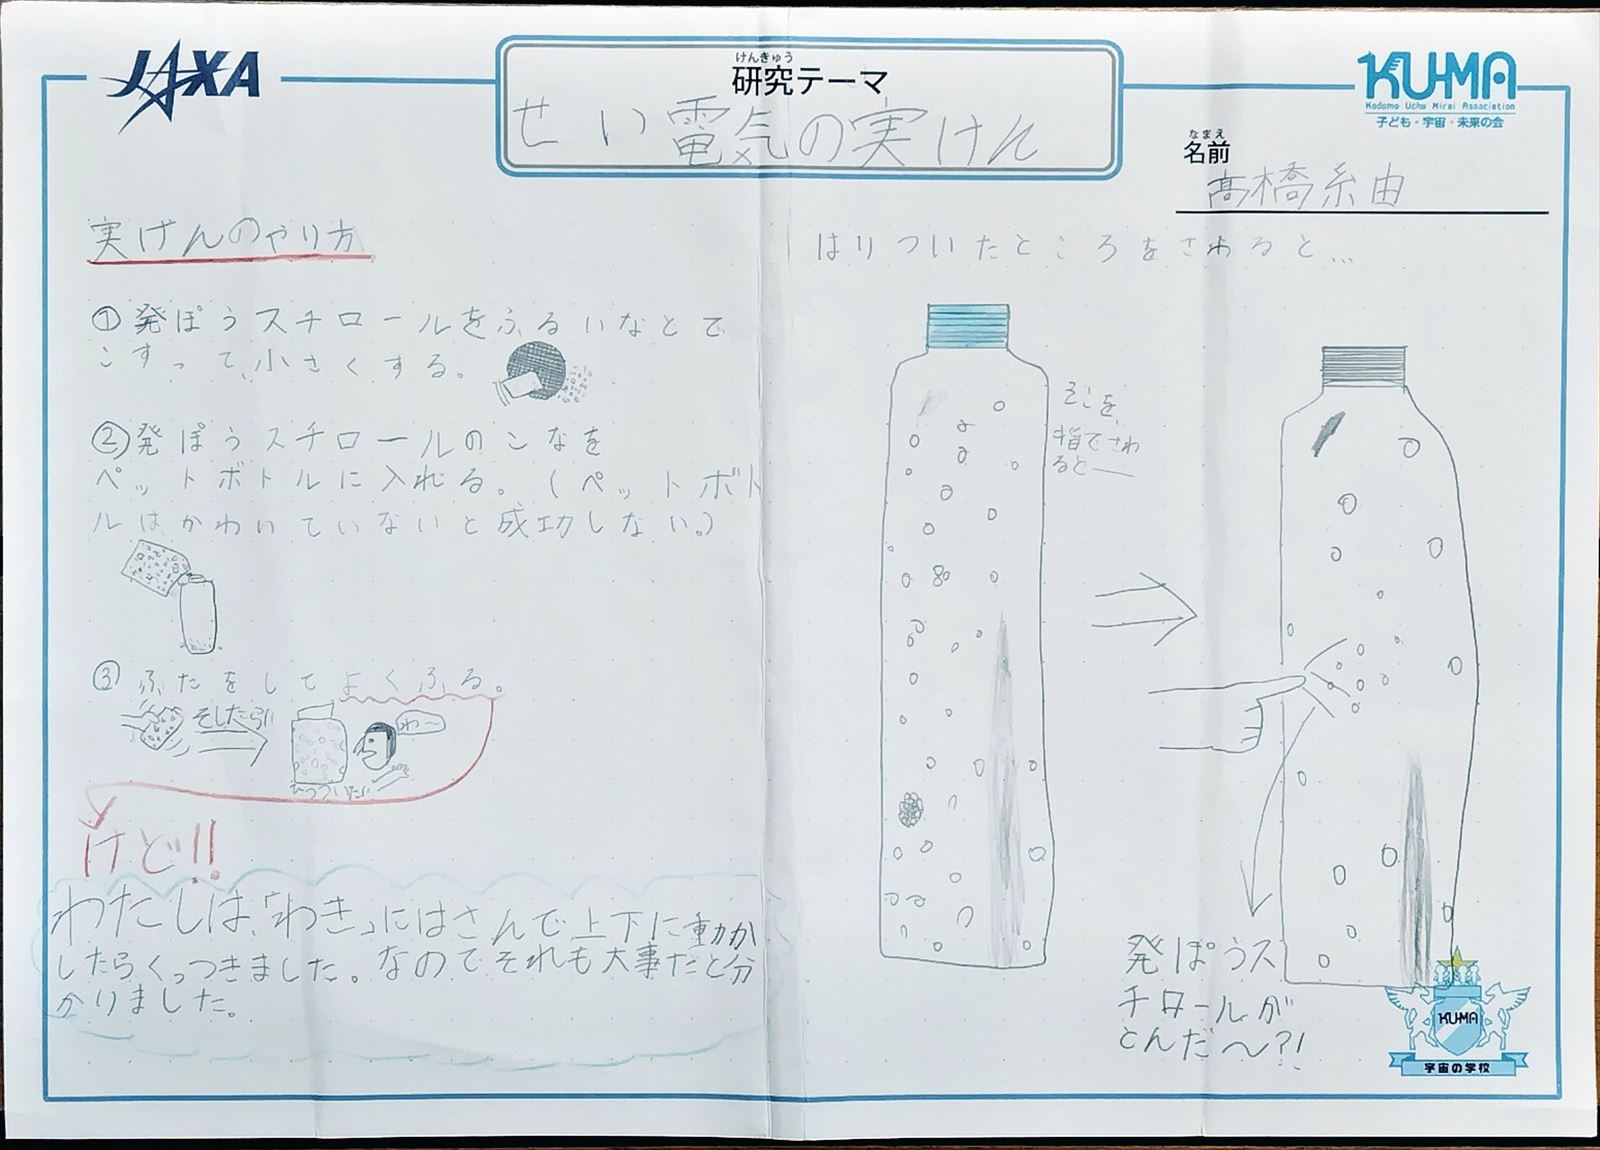 JAXA
けんきゅう
研究テーマ
せい電気の実けん
KU-MA
Kodomo Uchu Mirai Association
子ども・宇宙・未来の会
なまえ
名前
髙橋糸由
実けんのやり方
①発ぽうスチロールをふるいなとで
こすって、小さくする。
②発ぽうスチロールのこなを
ペットボトルに入れる。(ペットボト
ルはかわいていないと成功しない。)
③ふたをしてよくふる。
そしたら!!
わ〜
ひっついた!!
けど!!
わたしは、「わき」にはさんで上下に動かか
したらくっつきました。なのでそれも大事だと分
かりました。
はりついたところをさわると…
そこを、
指でさわ
ると―
発ぽうス
チロールが
とんだ〜?!
KU-MA
宇宙の学校